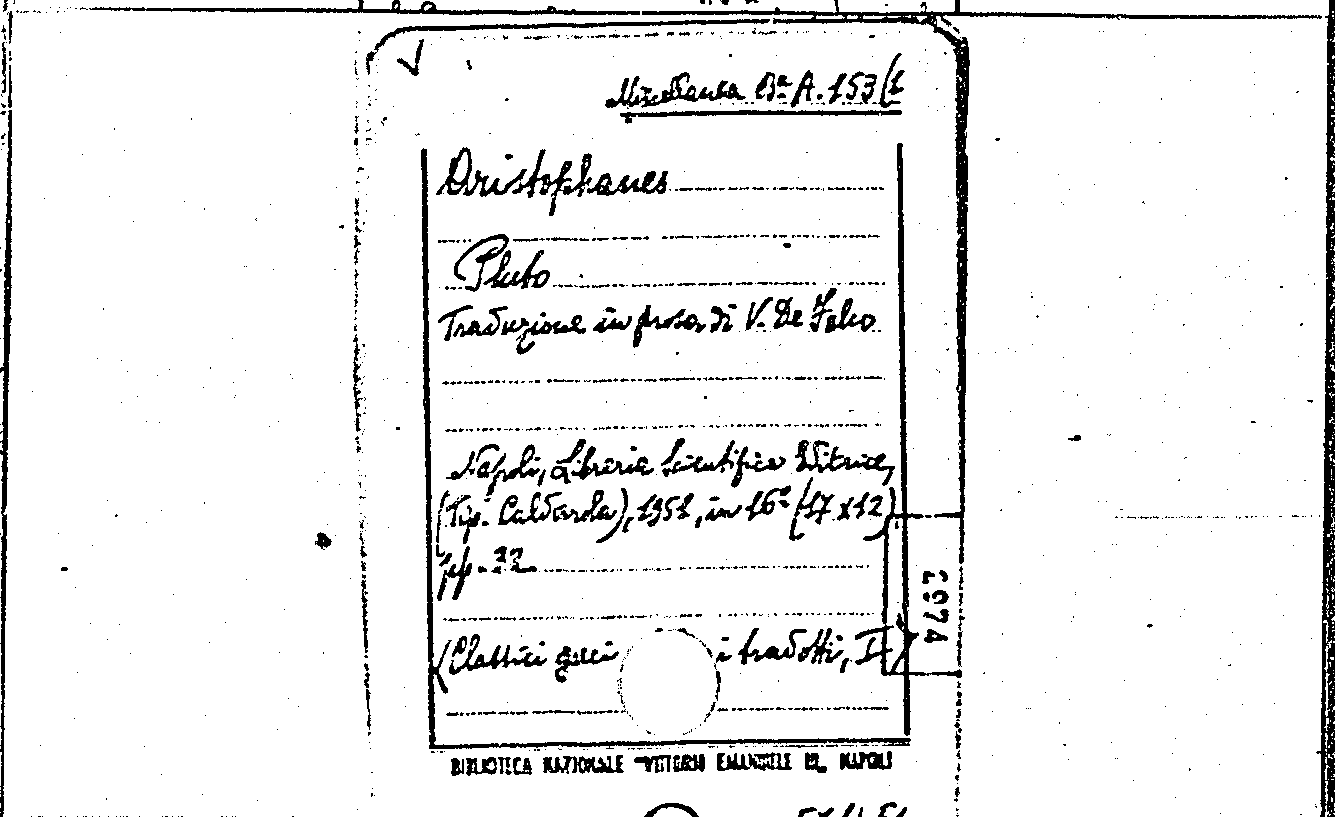 Miscellanea Bª A. 153 (1
Aristophanes
Pluto
Traduzione in prosa di V. De Falco
Napoli, Libreria Scientifica Editrice,
(Tip. Caldarola), 1951, in 16° (17 x 12)
pp. 32
(Classici greci i tradotti, I)
2974
BIBLIOTECA NAZIONALE "VITTORIO EMANUELE III" NAPOLI